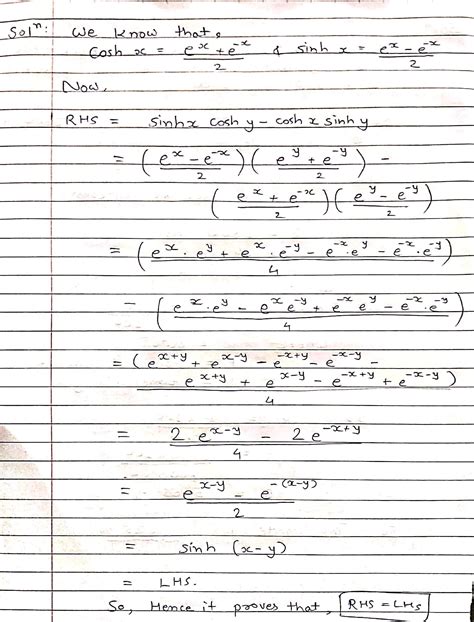 Solⁿ: We know that,
cosh x = (e^x + e^-x)/2 & sinh x = (e^x - e^-x)/2
Now,
RHS = sinhx coshy - cosh x sinh y
= ((e^x - e^-x)/2) ((e^y + e^-y)/2) -
((e^x + e^-x)/2) ((e^y - e^-y)/2)
= ((e^x . e^y + e^x . e^-y - e^-x . e^y - e^-x . e^-y)/4)
- ((e^x . e^y - e^x e^-y + e^-x e^y - e^-x . e^-y)/4)
= (e^x+y + e^x-y - e^-x+y - e^-x-y -
e^x+y + e^x-y - e^-x+y + e^-x-y)/4
= (2 . e^x-y - 2 e^-x+y)/4
= (e^x-y - e^-(x-y))/2
= sinh (x-y)
= LHS.
So, Hence it proves that, RHS = LHS